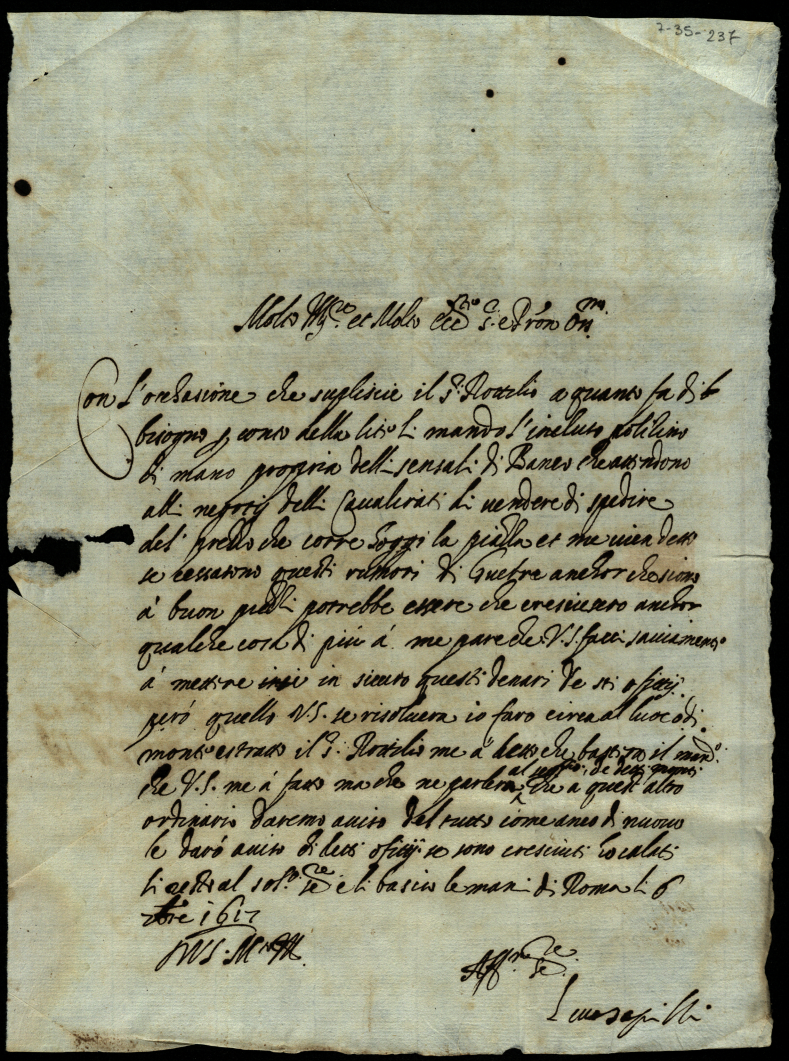 7-35-237
Molto Mag.re et Molto ecc.mo S. e Pron Oss.mo
Con l'ochasione che suplischie il S. Rottilio a quanto fa di
bisogno p conto della lite li mando l'incluso polilino
di mano propria delli sensali di Banco che attendono
alli negotij delli Cavalierati di vendere di spedire
del prezzo che corre hoggi la piazza et me vien detto
se cessasono questi rumori di Guerre anchor che siono
à buon prezzi potrebbe essere che crescessero anchor
qualche cosa di più à me pare che V.S. facci saviamente
à mettere in sicuro questi denari de sti offitij
però quello V.S. se risolvera io faro circa al luoco di
monte estratto il S. Rottilio me à detto che basti il man.to
che V.S. me à fatto ma che ne parlera al offitio de detti monti che a quest altro
ordinario daremo aviso del tutto come anco di nuovo
le darò aviso di detti offitij se sono cresciuti ho calati
li resto al sol.to se.re e li bascio le mani di Roma li 6
1617
D V.S. M.to M.
Aff.mo se.re